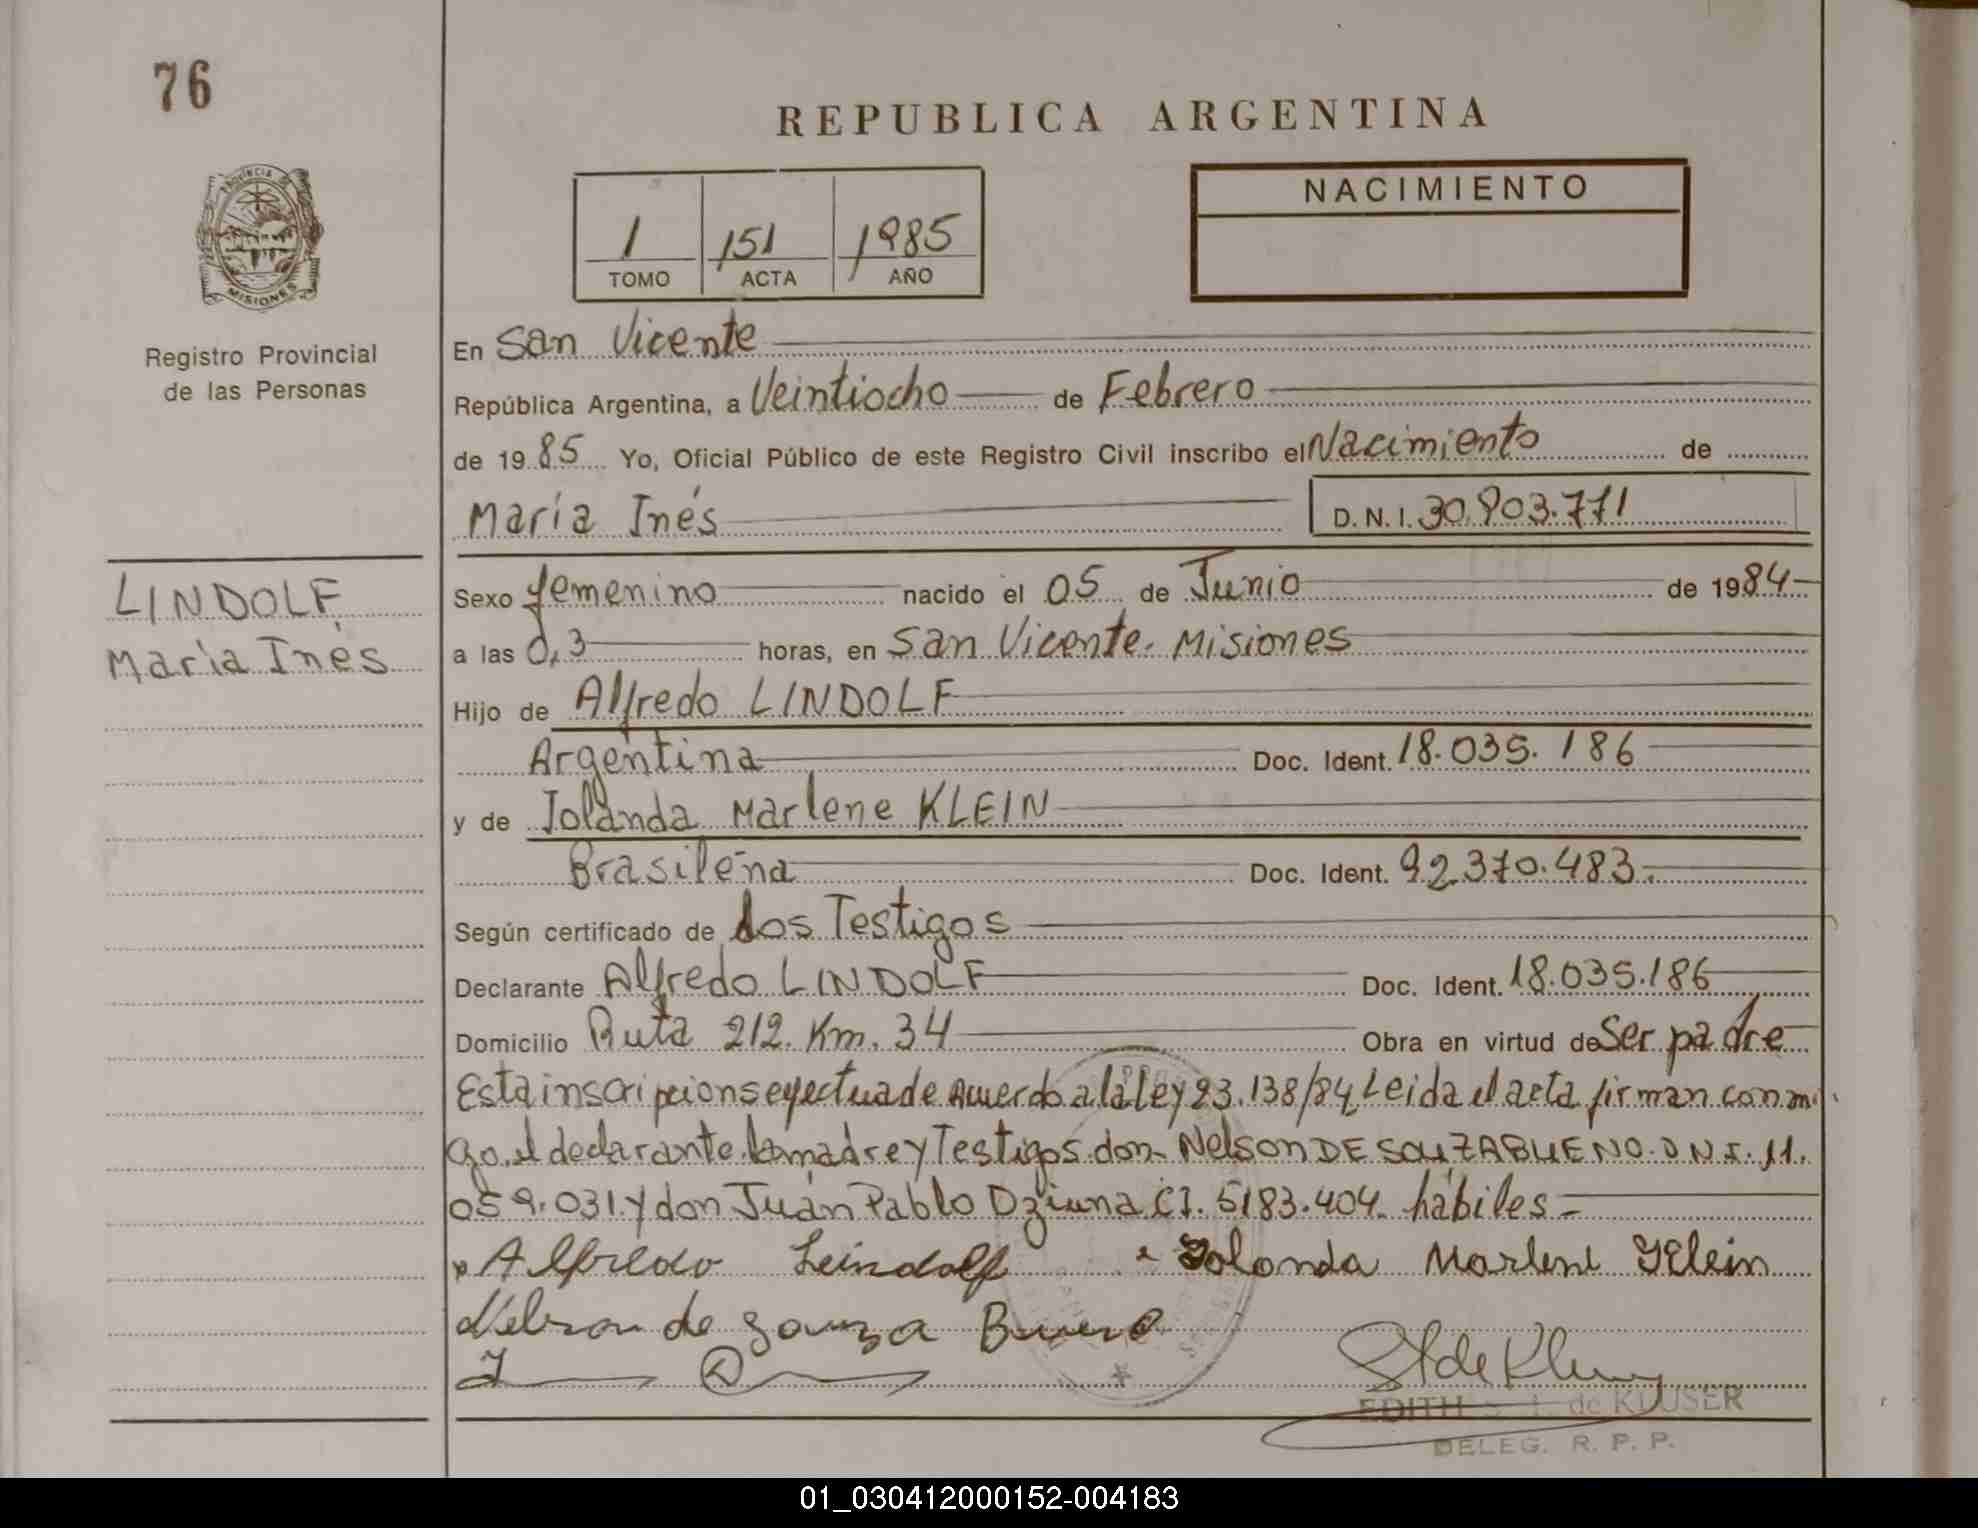 76
REPUBLICA ARGENTINA
PROVINCIA DE
MISIONES
Registro Provincial
de las Personas
1 151 1985
TOMO ACTA AÑO
NACIMIENTO
En San Vicente
República Argentina, a Veintiocho de Febrero
de 1985 Yo, Oficial Público de este Registro Civil inscribo el Nacimiento de
María Inés D.N.I. 30.903.771
LINDOLF
María Inés
Sexo femenino nacido el 05 de Junio de 1984
a las 0,3 horas, en San Vicente. Misiones
Hijo de Alfredo LINDOLF
Argentina Doc. Ident. 18.035.186
y de Iolanda Marlene KLEIN
Brasileña Doc. Ident. 92.370.483.
Según certificado de dos Testigos
Declarante Alfredo LINDOLF Doc. Ident. 18.035.186
Domicilio Ruta 212. Km. 34 Obra en virtud de Ser padre
Esta inscripcion se efectua de Acuerdo a la Ley 23.138/84, Leida el acta firman conmi
go, el declarante, la madre y Testigos don Nelson DE SOUZA BUENO. D.N.I. 11.
059.031 y don Juan Pablo Dziuna C.I. 5183.404. hábiles =
Alfredo Leindolf Iolonda Marlene Klein
Nelson de Souza Bueno
EDITH S. T. de KLUSER
DELEG. R. P. P.
01_030412000152-004183